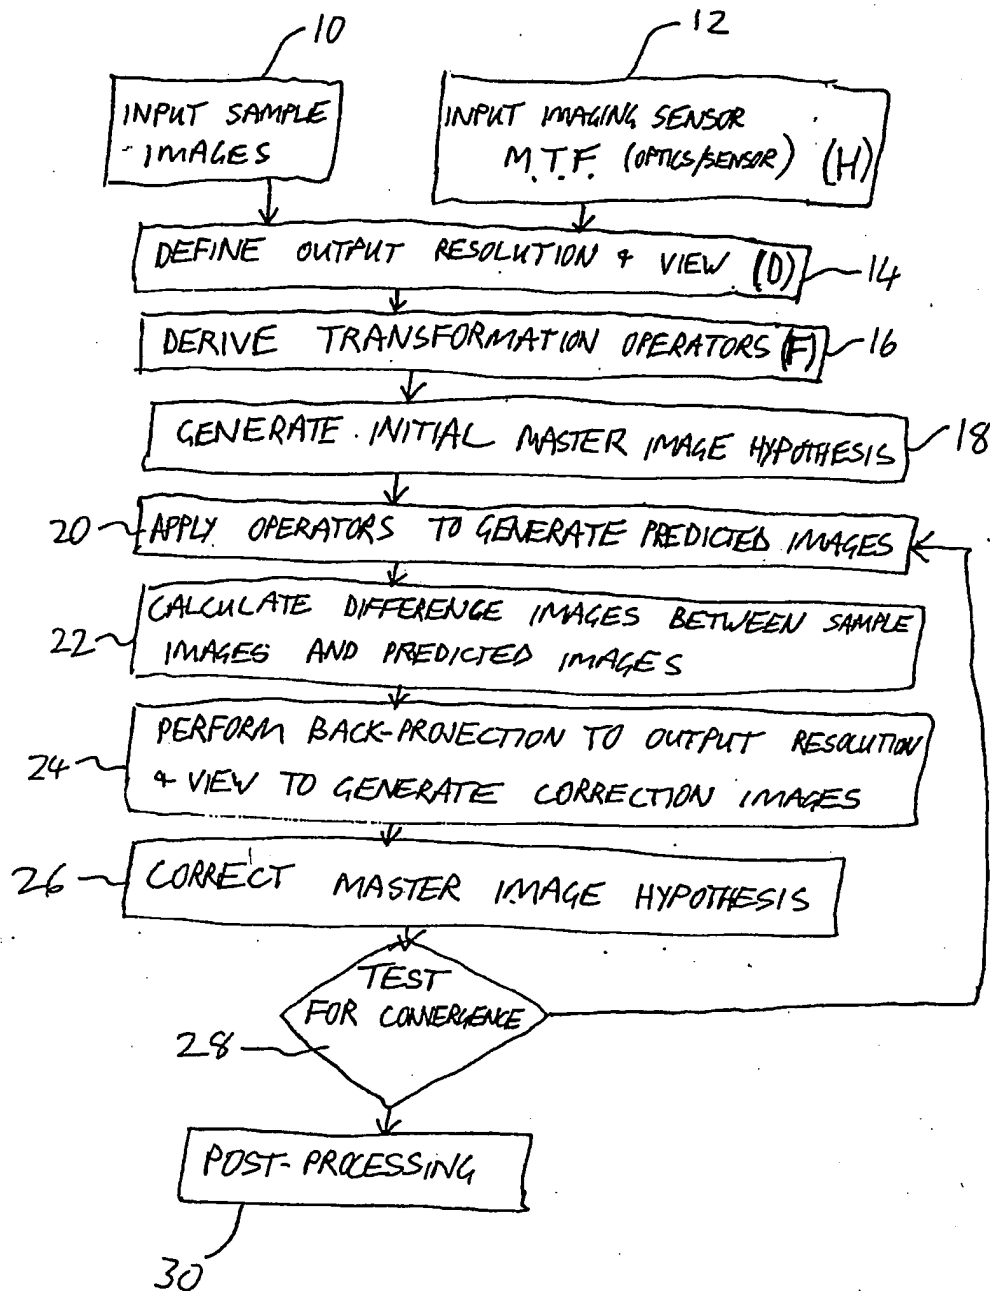 10
12
INPUT SAMPLE
IMAGES
INPUT IMAGING SENSOR
M.T.F. (OPTICS/SENSOR) (H)
DEFINE OUTPUT RESOLUTION & VIEW (D)
14
DERIVE TRANSFORMATION OPERATORS (F)
16
GENERATE INITIAL MASTER IMAGE HYPOTHESIS
18
20
APPLY OPERATORS TO GENERATE PREDICTED IMAGES
CALCULATE DIFFERENCE IMAGES BETWEEN SAMPLE
22
IMAGES AND PREDICTED IMAGES
PERFORM BACK-PROJECTION TO OUTPUT RESOLUTION
24
& VIEW TO GENERATE CORRECTION IMAGES
26
CORRECT MASTER IMAGE HYPOTHESIS
TEST
FOR CONVERGENCE
28
POST-PROCESSING
30